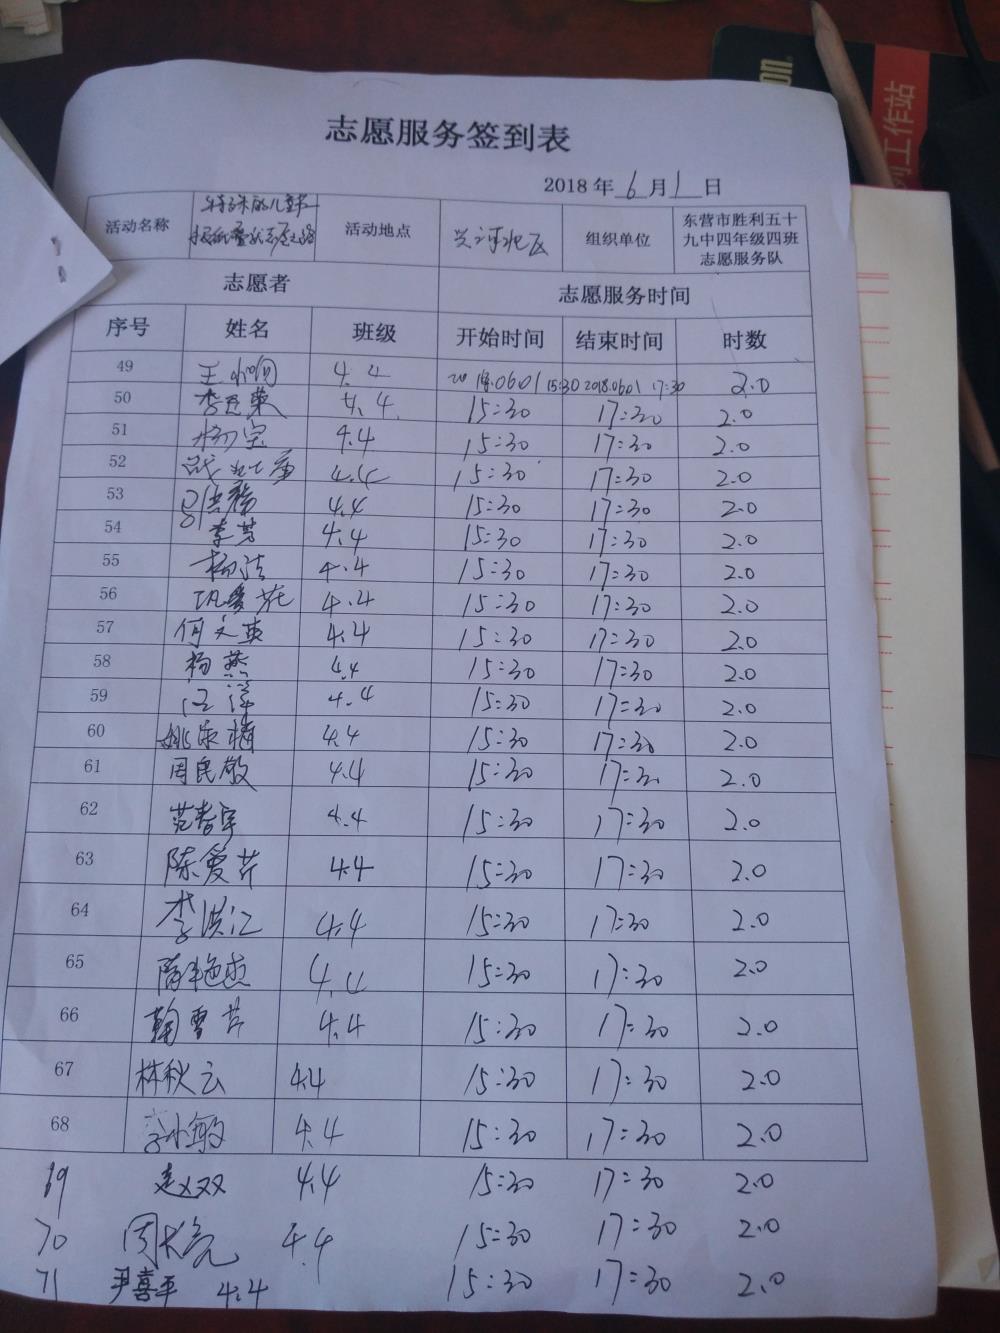 志愿服务签到表
2018 年 6 月 1 日
活动名称 活动地点 组织单位 东营市胜利五十
九中四年级四班
志愿服务队
志愿者 志愿服务时间
序号 姓名 班级 开始时间 结束时间 时数
49 王 4.4 2018.0601 15:30 2018.0601 17:30 2.0
50 李 荣 4.4 15:30 17:30 2.0
51 杨宗 4.4 15:30 17:30 2.0
52 4.4 15:30 17:30 2.0
53 4.4 15:30 17:30 2.0
54 李芳 4.4 15:30 17:30 2.0
55 杨洁 4.4 15:30 17:30 2.0
56 巩爱花 4.4 15:30 17:30 2.0
57 何文英 4.4 15:30 17:30 2.0
58 杨燕 4.4 15:30 17:30 2.0
59 汪洋 4.4 15:30 17:30 2.0
60 姚 4.4 15:30 17:30 2.0
61 周民敬 4.4 15:30 17:30 2.0
62 范春宇 4.4 15:30 17:30 2.0
63 陈爱芹 4.4 15:30 17:30 2.0
64 李洪江 4.4 15:30 17:30 2.0
65 隋艳杰 4.4 15:30 17:30 2.0
66 鞠雪芹 4.4 15:30 17:30 2.0
67 林秋云 4.4 15:30 17:30 2.0
68 李小敏 4.4 15:30 17:30 2.0
69 赵双双 4.4 15:30 17:30 2.0
70 周大亮 4.4 15:30 17:30 2.0
71 尹喜平 4.4 15:30 17:30 2.0
on
工作站